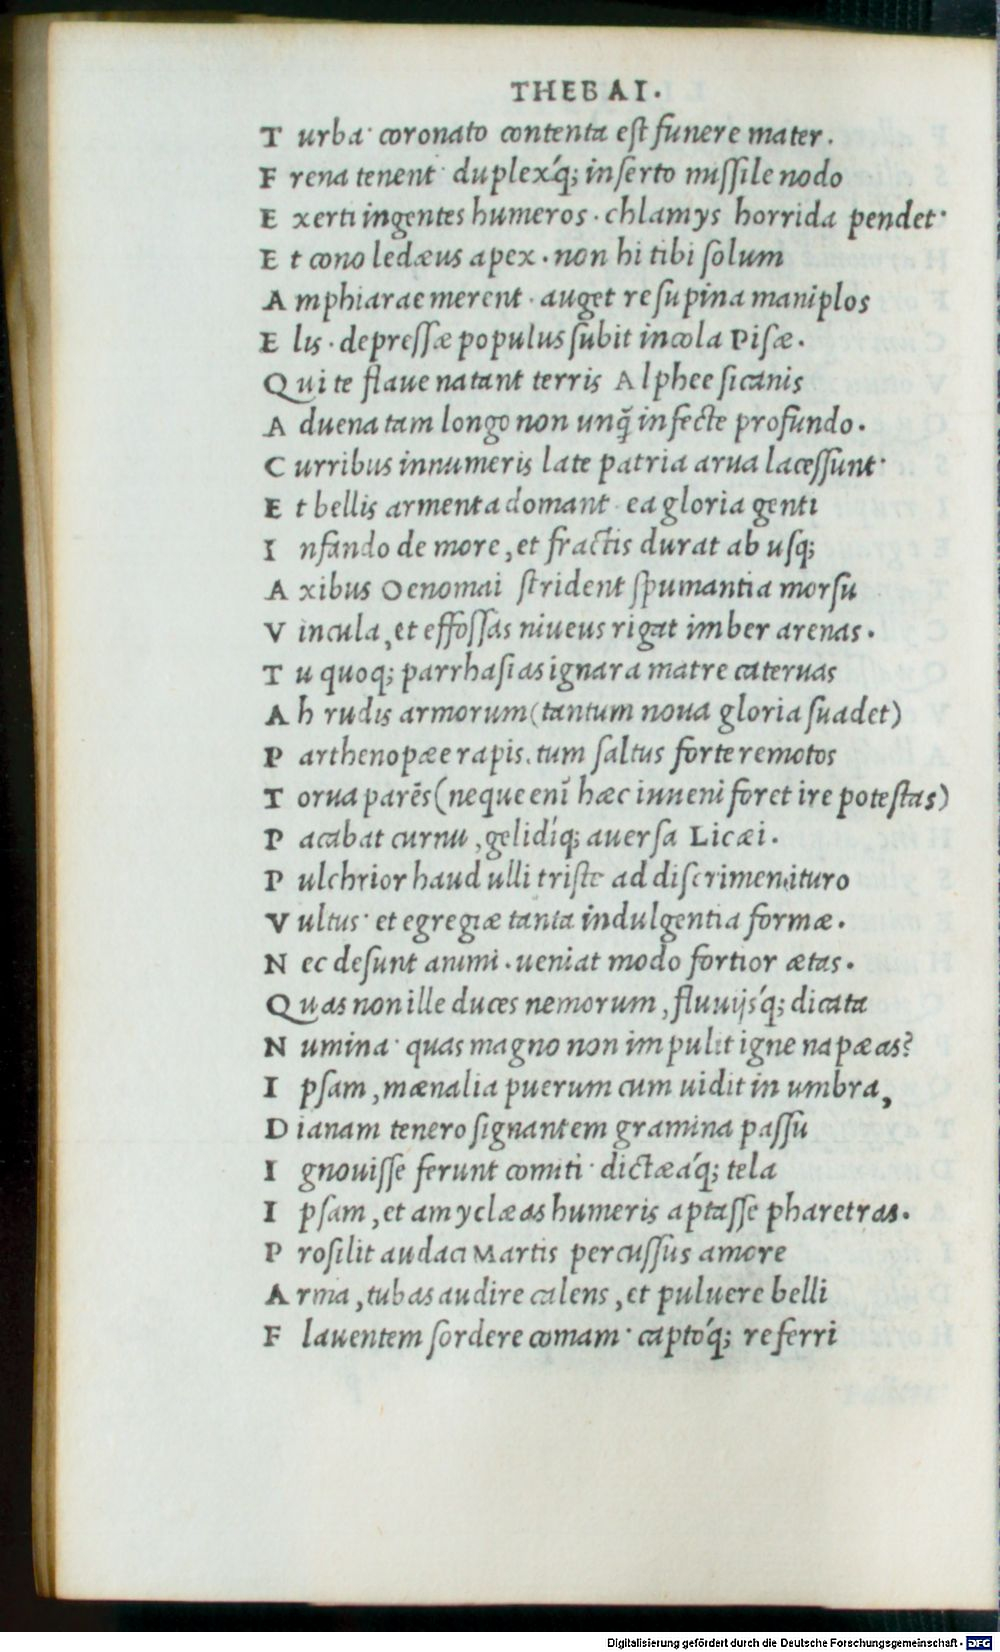 THEBAI.
Turba· coronato contenta est funere mater.
Frena tenent· duplexq́; inserto missile nodo
Exerti ingentes humeros· chlamys horrida pendet·
Et cono ledæus apex. non hi tibi solum
Amphiarae merent· auget resupina maniplos
Elis· depressæ populus subit incola Pisæ.
Qui te flaue natant terris Alphee sicanis
Aduena tam longo non unq̃ infecte profundo.
Curribus innumeris late patria arua lacessunt·
Et bellis armenta domant· ea gloria genti
Infando de more, et fractis durat ab usq;
Axibus Oenomai strident spumantia morsu
Vincula, et effossas niueus rigat imber arenas.
Tu quoq; parrhasias ignara matre cateruas
Ah rudis armorum (tantum noua gloria suadet)
Parthenopæe rapis. tum saltus forte remotos
Torua parēs (neque enī hæc iuueni foret ire potestas)
Pacabat curnu, gelidíq; auersa Licæi.
Pulchrior haud ulli triste ad discrimen ituro
Vultus· et egregiæ tanta indulgentia formæ.
Nec desunt animi. ueniat modo fortior ætas.
Quas non ille duces nemorum, fluuijsq́; dicata
Numina· quas magno non impulit igne napæas?
Ipsam, mænalia puerum cum uidit in umbra,
Dianam tenero signantem gramina passu
Ignouisse ferunt comiti· dictæaq́; tela
Ipsam, et amyclæas humeris aptasse pharetras.
Prosilit audaci Martis percussus amore
Arma, tubas audire calens, et puluere belli
Flauentem sordere comam· captoq́; referri
Digitalisierung gefördert durch die Deutsche Forschungsgemeinschaft - DFG